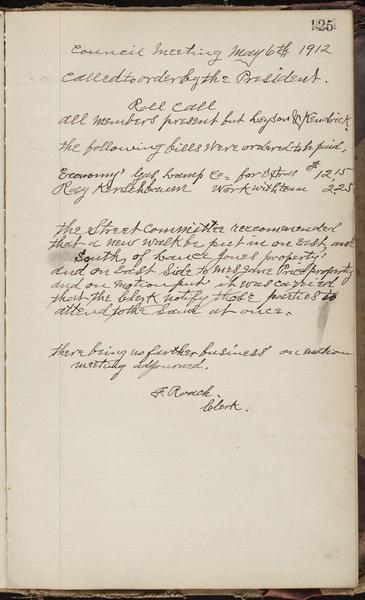 125
Council Meeting May 6th 1912
Called to order by the President.
Roll Call
all members present but Deyson & Kendrick.
the following bills were ordered to be paid:
Economy Gas Lamp Co = for Extras $ 12.15
Ray Kerschbaum Work with team 2.25
the Street Committee recommended
that a new walk be put in on East and
South of Lance Jones property
and on East Side to Mrs Jane Price property
and on motion put it was carried
that the Clerk notify those parties to
attend to the Same at once.
there being no farther business on motion
meeting adjourned.
F. Roach.
Clerk.